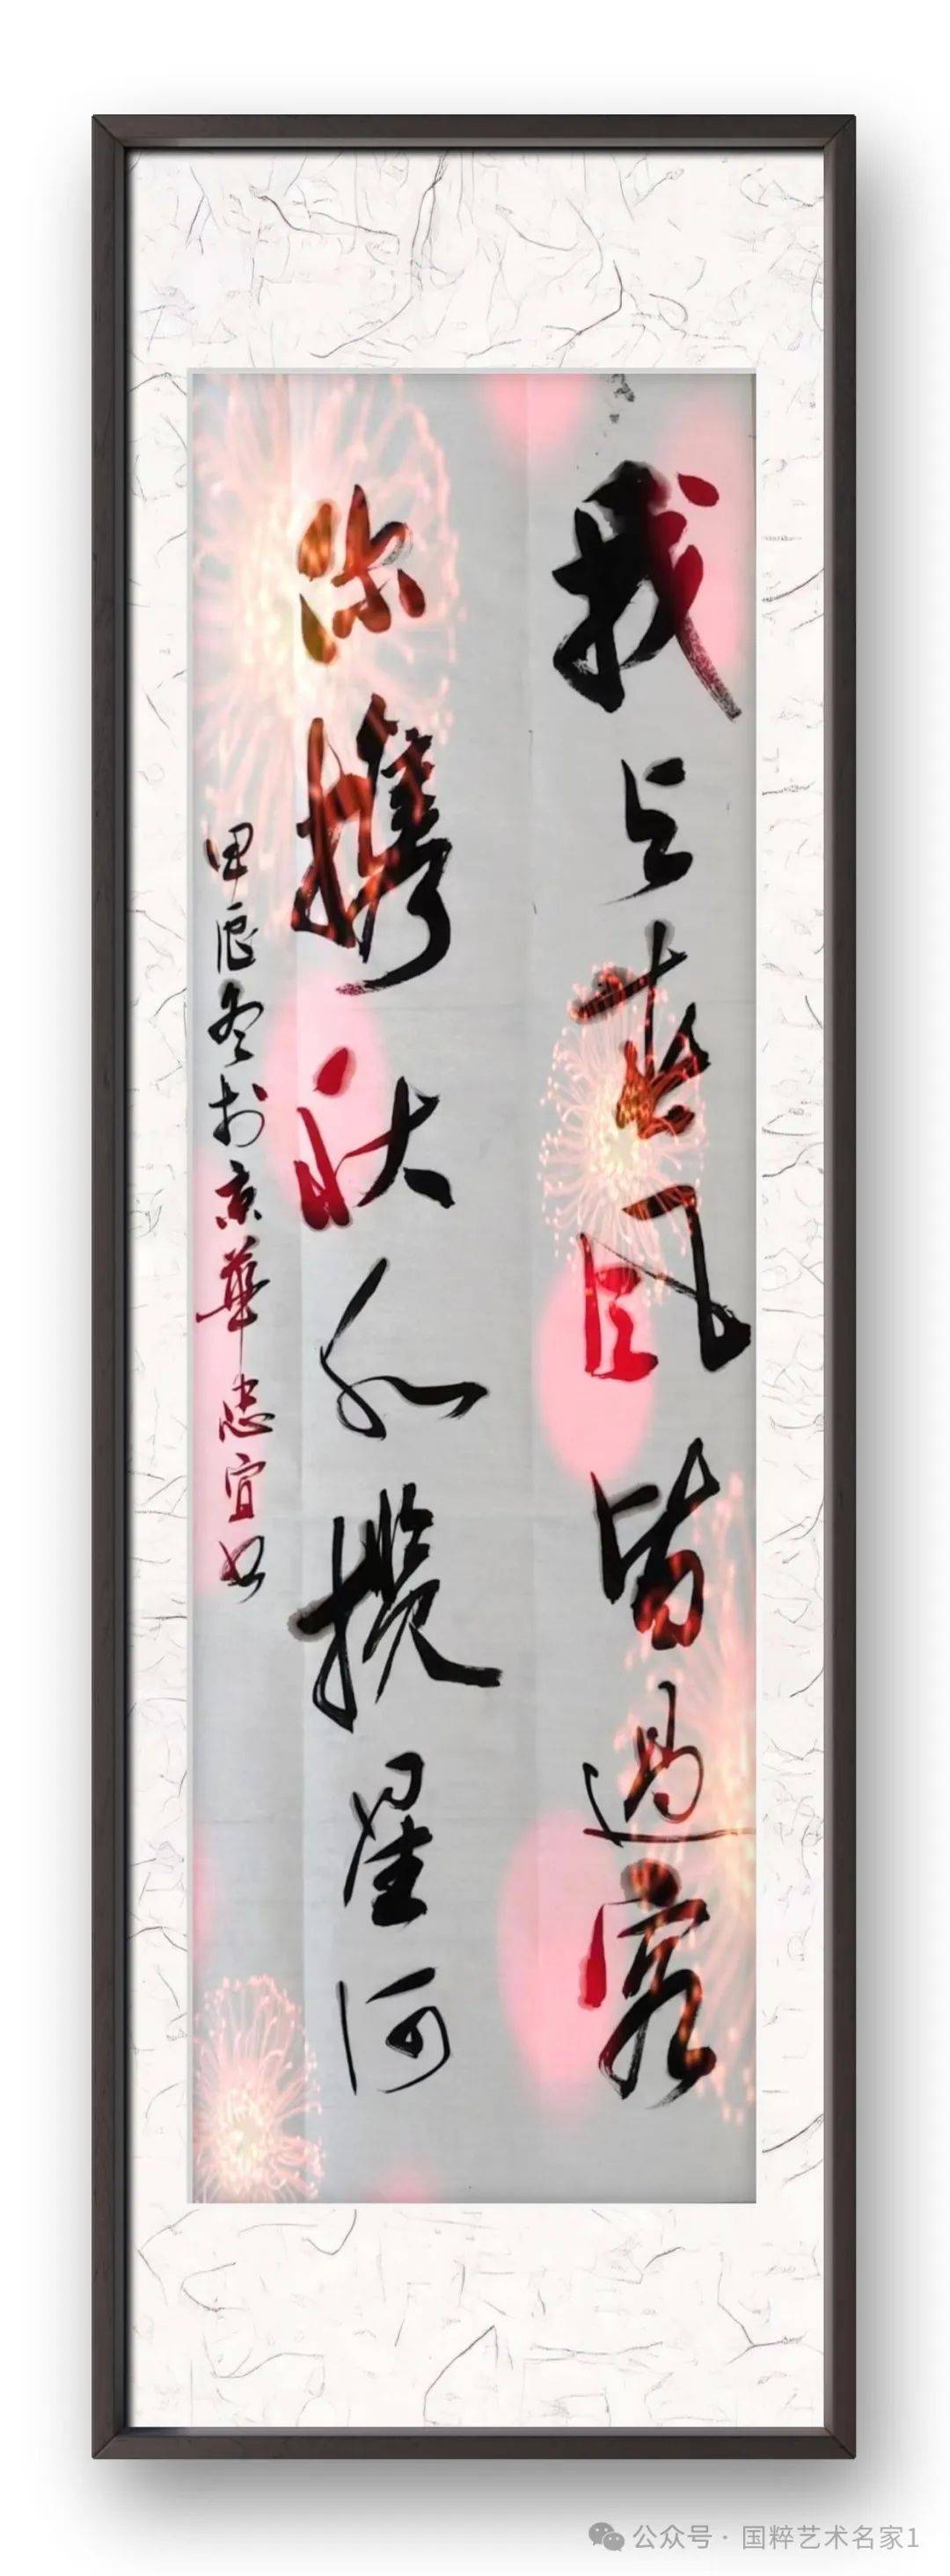 我与春风皆过客
你携秋水揽星河
甲辰冬於京華忠宜书
公众号 · 国粹艺术名家1